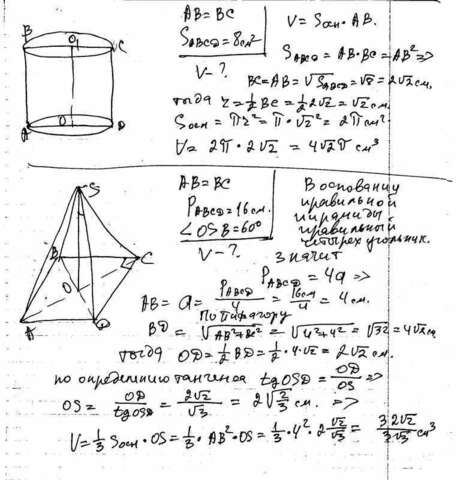 B
O
C
A
O
D
AB = BC
S_ABCD = 8см²
V - ?
V = Sосн · AB.
S_ABCD = AB · BC = AB² =>
BC = AB = √S_ABCD = √8 = 2√2 см.
тогда r = ½ BC = ½ 2√2 = √2 см.
Sосн = πr² = π · √2² = 2π см²
V = 2π · 2√2 = 4√2π см³
S
B
C
O
A
D
AB = BC
P_ABCD = 16 см.
∠OSB = 60°
V - ?
В основании
правильной
пирамиды
правильный
четырехугольник.
Значит
P_ABCD = 4a =>
AB = a = P_ABCD/4 = 16см/4 = 4 см.
По Пифагору
BD = √AB²+BC² = √4²+4² = √32 = 4√2 см
тогда OD = ½ BD = ½ · 4·√2 = 2√2 см.
по определению тангенса tg OSD = OD/OS =>
OS = OD/tg OSD = 2√2/√3 = 2√⅔ см. =>
V = ⅓ Sосн · OS = ⅓ · AB² · OS = ⅓ · 4² · 2 √2/√3 = 32√2/3√3 см³